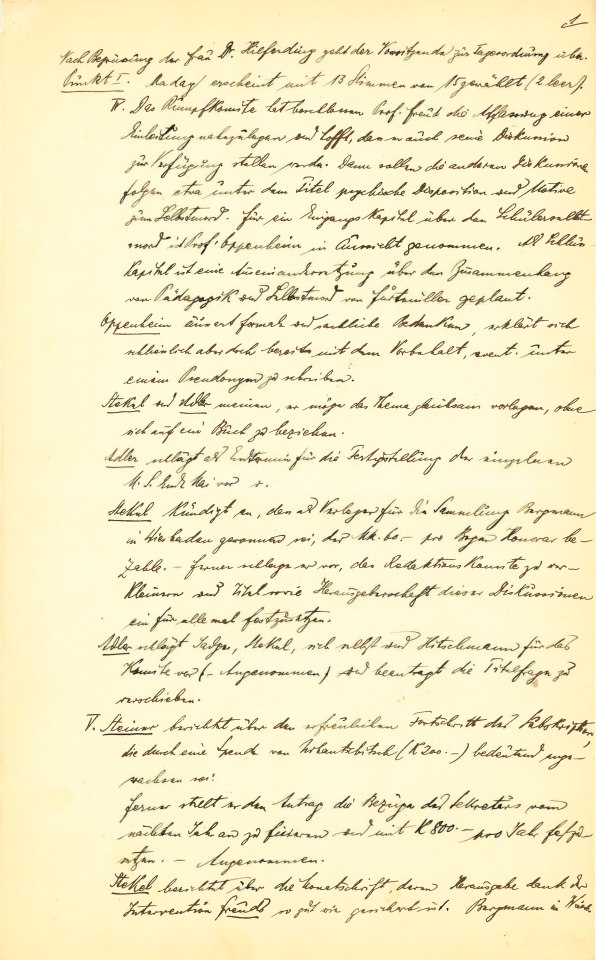 1
Nach Begrüssung der Frau Dr. Hilferding geht der Vorsitzende zur Tagesordnung über.
Punkt I. erscheint mit 13 Stimmen von 15 gewählt (2 leer).
IV. Das Rumpfkomite hat beschlossen Prof. Freud die Abfassung einer
Einleitung nahezulegen und hofft, dass er auch seine Diskussion
zur Verfügung stellen werde. Dann sollen die anderen Diskussionen
folgen etwa unter dem Titel psychische Disposition und Motive
zum Selbstmord. Für ein Eingangskapitel über den Schülerselbst-
mord ist Prof. Oppenheim in Aussicht genommen. Als Schluss-
Kapitel ist eine Auseinandersetzung über den Zusammenhang
von Pädagogik und Selbstmord von Furtmüller geplant.
Oppenheim äussert formale und sachliche Bedenken, erklärt sich
schliesslich aber doch bereit mit dem Vorbehalt, event. unter
einem Pseudonym zu schreiben.
Stekel und Adler meinen, er möge das Thema gleichsam vorlegen, ohne
sich auf ein Buch zu beziehen.
Adler schlägt als Endtermin für die Fertigstellung der einzelnen
M. S. Ende Mai vor
Stekel kündigt an, dass als Verleger für die Sammlung Bergmann
in Wiesbaden gewonnen sei, der Mk. 60.- pro Bogen Honorar be-
zahle. – Ferner schlage er vor, das Redaktions Komite zu ver-
kleinern und Titel sowie Herausgeberschaft dieser Diskussionen
ein für alle mal festzusetzen.
Adler schlägt Sadger, Stekel, sich selbst und Hitschmann für das
Komite vor (– Angenommen) und beantragt die Titelfrage zu
verschieben.
V. Steiner berichtet über den erfreulichen Fortschritt der
die durch eine Spende von Urbantschitsch (K 200.–) bedeutend ange-
wachsen sei.
Ferner stellt er den Antrag die Bezüge des Sekretärs vom
nächsten Jahr an zu fixieren und mit K 800.– pro Jahr festzu-
setzen. – Angenommen.
Stekel berichtet über die Monatschrift, deren Herausgabe dank der
Intervention Freuds so gut wie gesichert ist. Bergmann in